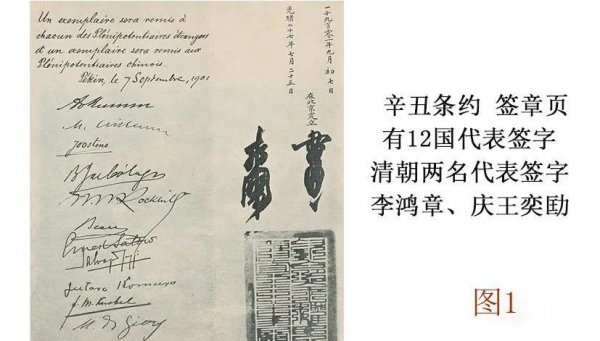 Un exemplaire sera remis à
chacun des Plénipotentiaires Étrangers
et un exemplaire sera remis aux
Plénipotentiaires chinois.
Pékin, le 7 Septembre, 1901
Joostens
Rockhill
Beau
Ernest Satow
Jutaro Komura
F. M. Knobel
M. de Giers
一千九百零一年九月初七日
光緒二十七年七月二十五日
在北京定立
辛丑条约 签章页
有12国代表签字
清朝两名代表签字
李鸿章、庆王奕劻
图1